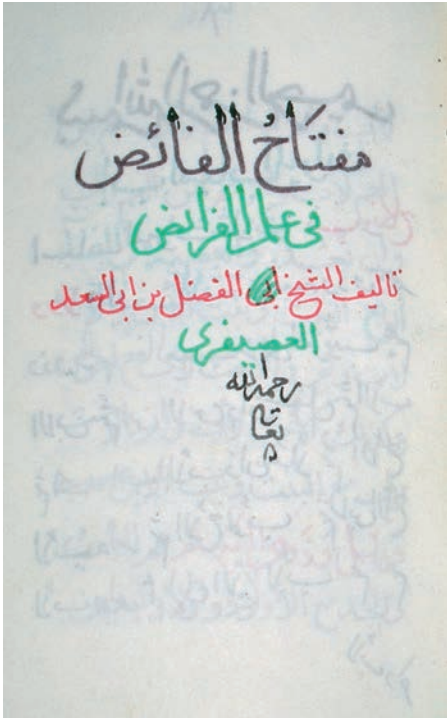 مفتَاحُ الفائض
في علم الفرائض
تاليف الشيخ ابي الفضل بن ابي السعد
العصيفري
رحمه الله
تعالى